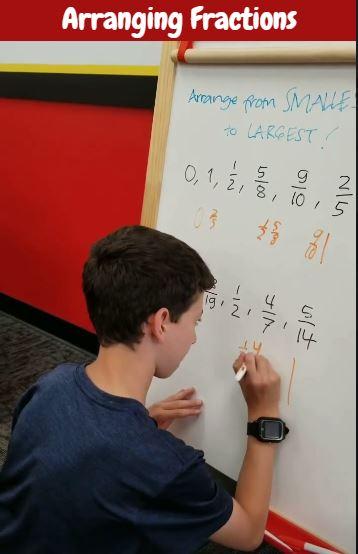 Arranging Fractions
Arrange from SMALLE
to LARGEST!
0, 1, 1/2, 5/8, 9/10, 2/5
0 2/5 1/2 5/8 9/10 1
/19, 1/2, 4/7, 5/14
1 4 1